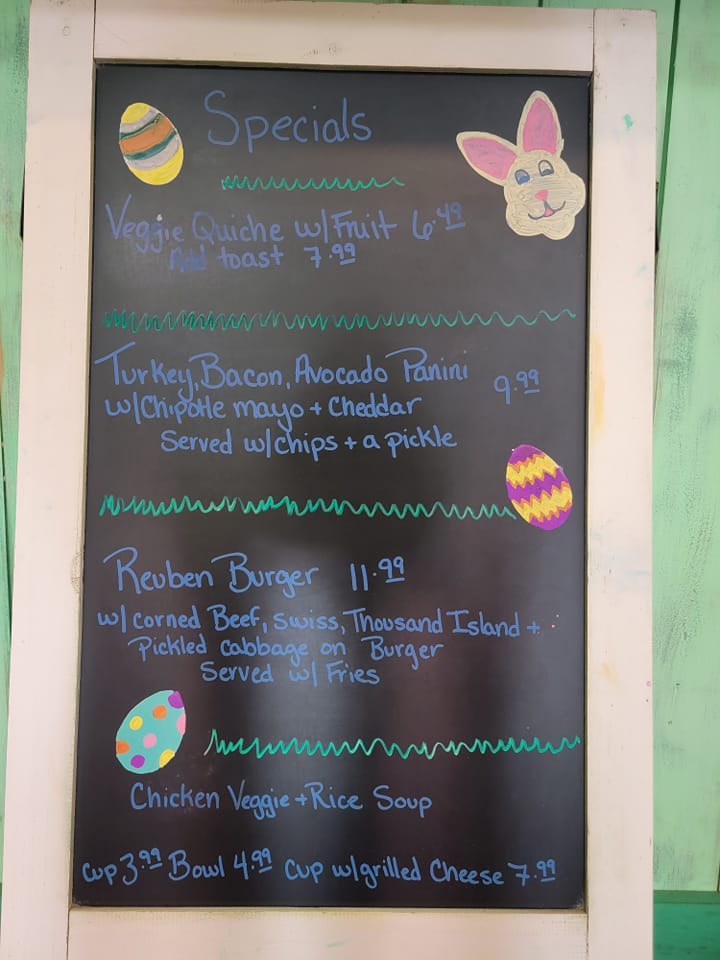 Specials
Veggie Quiche w/Fruit 6.49
Add toast 7.99
Turkey, Bacon, Avocado Panini 9.99
w/Chipotle mayo + Cheddar
Served w/chips + a pickle
Reuben Burger 11.99
w/ corned Beef, Swiss, Thousand Island +
Pickled cabbage on Burger
Served w/ Fries
Chicken Veggie + Rice Soup
cup 3.99 Bowl 4.99 Cup w/grilled Cheese 7.99